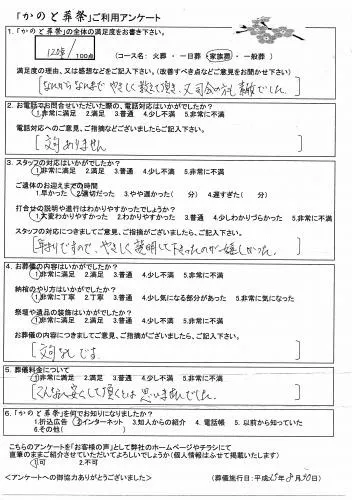 「かのと葬祭」ご利用アンケート
1.「かのと葬祭」の全体の満足度をお書き下さい。
120点/100点 (コース名: 火葬 ・ 一日葬 ・ 家族葬 ・ 一般葬 )
満足度の理由、又は感想などをご記入下さい。(改善すべき点などご意見をお聞かせ下さい)
なにからなにまで やさしく教えて頂き、又司会の方も素敵でした。
2.お電話でお問合せいただいた際の、電話対応はいかがでしたか?
1.非常に満足 2.満足 3.普通 4.少し不満 5.非常に不満
電話対応へのご意見、ご指摘などございましたらご記入下さい。
文句ありません
3.スタッフの対応はいかがでしたか?
1.非常に満足 2.満足 3.普通 4.少し不満 5.非常に不満
ご遺体のお迎えまでの時間
1.早かった 2.適切だった 3.やや遅かった( 分) 4.遅すぎた( 分)
打合せの説明や進行はわかりやすかったでしょうか?
1.大変わかりやすかった 2.わかりやすかった 3.普通 4.少しわかりづらかった 5.非常に不満
スタッフの対応につきましてご意見、ご指摘がございましたら、ご記入下さい。
年寄りですので、やさしく説明して下さったのが嬉しかった。
4.お葬儀の内容はいかがでしたか?
1.非常に満足 2.満足 3.普通 4.少し不満 5.非常に不満
納棺のやり方はいかがでしたか?
1.非常に丁寧 2.丁寧 3.普通 4.少し気になる部分があった 5.非常に気になった
祭壇や遺品の装飾はいかがでしたか?
1.非常に満足 2.満足 3.普通 4.少し不満 5.非常に不満
お葬儀の内容につきましてご意見、ご指摘がございましたら、ご記入下さい。
文句なしです。
5.葬儀料金について
1.非常に満足 2.満足 3.普通 4.少し不満 5.非常に不満
こんなに安くして頂くとは思いませんでした。
6.「かのと葬祭」を何でお知りになりましたか?
1.折込広告 2.インターネット 3.知人からの紹介 4.電話帳 5.以前から知っていた
6.その他( )
こちらのアンケートを「お客様の声」として弊社のホームページやチラシにて
直筆のままご紹介させていただいてよろしいでしょうか(個人情報はふせて掲載いたします)
1.可 2.不可
<アンケートへの御協力ありがとうございました> 葬儀施行日:平成25年8月30日